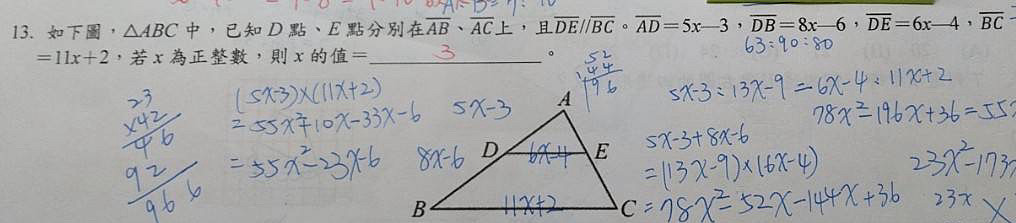 13. 如下圖，△ABC 中，已知 D 點、E 點分別在AB、AC上，且DE//BC。AD=5x—3，DB=8x—6，DE=6x—4，BC
=11x+2，若 x 為正整數，則 x 的值= 3 。
63:90:80
52
44
196
23
×42
46
92
966
(5x-3)×(11x+2)
=55x²+10x-33x-6
=55x²-23x-6
5x-3
8x-6
A
D 6x-4 E
B 11x+2 C
5x-3:13x-9=6x-4:11x+2
78x²-196x+36=55x
5x-3+8x-6
=(13x-9)×(6x-4)
=78x²-52x-144x+36
23x²-173x
23x